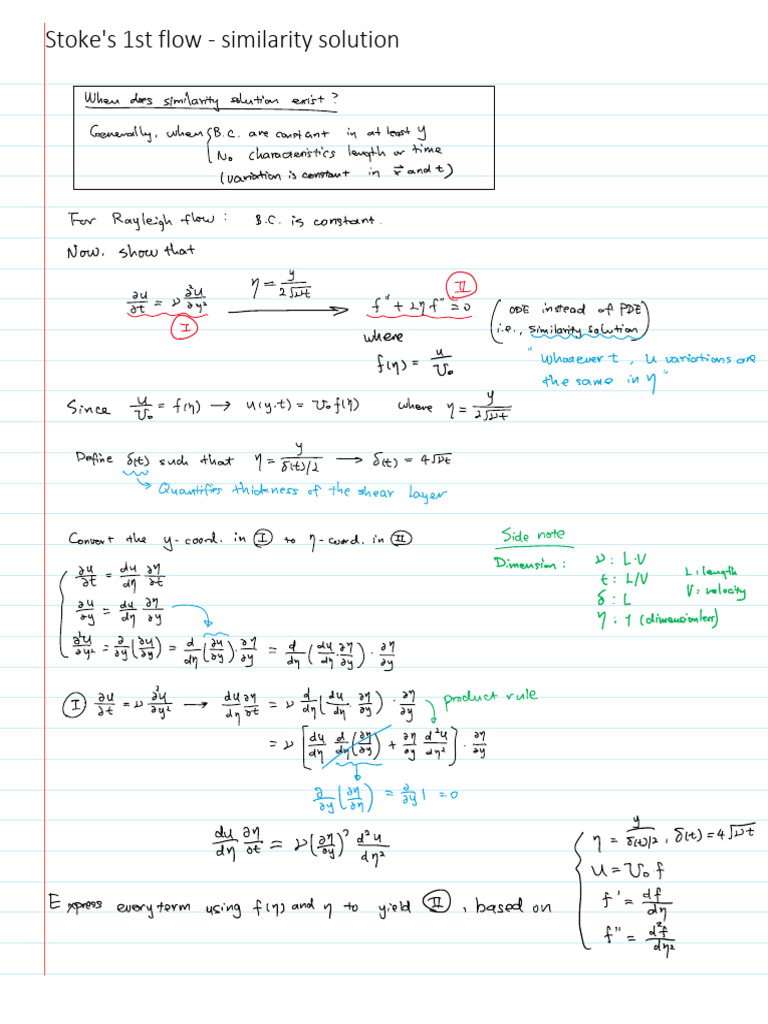 Stoke's 1st flow - similarity solution
When does similarity solution exist?
Generally, when { B.C. are constant in at least y
No characteristics length or time
(variation is constant in x⃗ and t)
For Rayleigh flow: B.C. is constant.
Now, show that
∂u/∂t = ν ∂²u/∂y² (I) → η = y/(2√νt) → f'' + 2ηf'' = 0 (II) (ODE instead of PDE
where i.e., similarity solution)
f(η) = u/U₀
"Whatever t, u variations are
the same in η"
Since u/U₀ = f(η) → u(y,t) = U₀f(η) where η = y/(2√νt)
Define δ(t) such that η = y/(δ(t)/2) → δ(t) = 4√νt
Quantifies thickness of the shear layer
Convert the y-coord. in (I) to η-coord. in (II)
∂u/∂t = du/dη ∂η/∂t
∂u/∂y = du/dη ∂η/∂y
∂²u/∂y² = ∂/∂y(∂u/∂y) = d/dη(∂u/∂y)·∂η/∂y = d/dη(du/dη·∂η/∂y)·∂η/∂y
Side note
Dimension: ν: L·V
t: L/V
δ: L
η: 1 (dimensionless)
L: length
V: velocity
(I) ∂u/∂t = ν ∂²u/∂y² → du/dη ∂η/∂t = ν d/dη(du/dη·∂η/∂y)·∂η/∂y
product rule
= ν[du/dη d/dη(∂η/∂y) + ∂η/∂y d²u/dη²]·∂η/∂y
∂/∂y(∂η/∂η) = ∂/∂y 1 = 0
du/dη ∂η/∂t = ν(∂η/∂y)² d²u/dη²
Express every term using f(η) and η to yield (II), based on
η = y/(δ(t)/2), δ(t) = 4√νt
u = U₀f
f' = df/dη
f'' = d²f/dη²